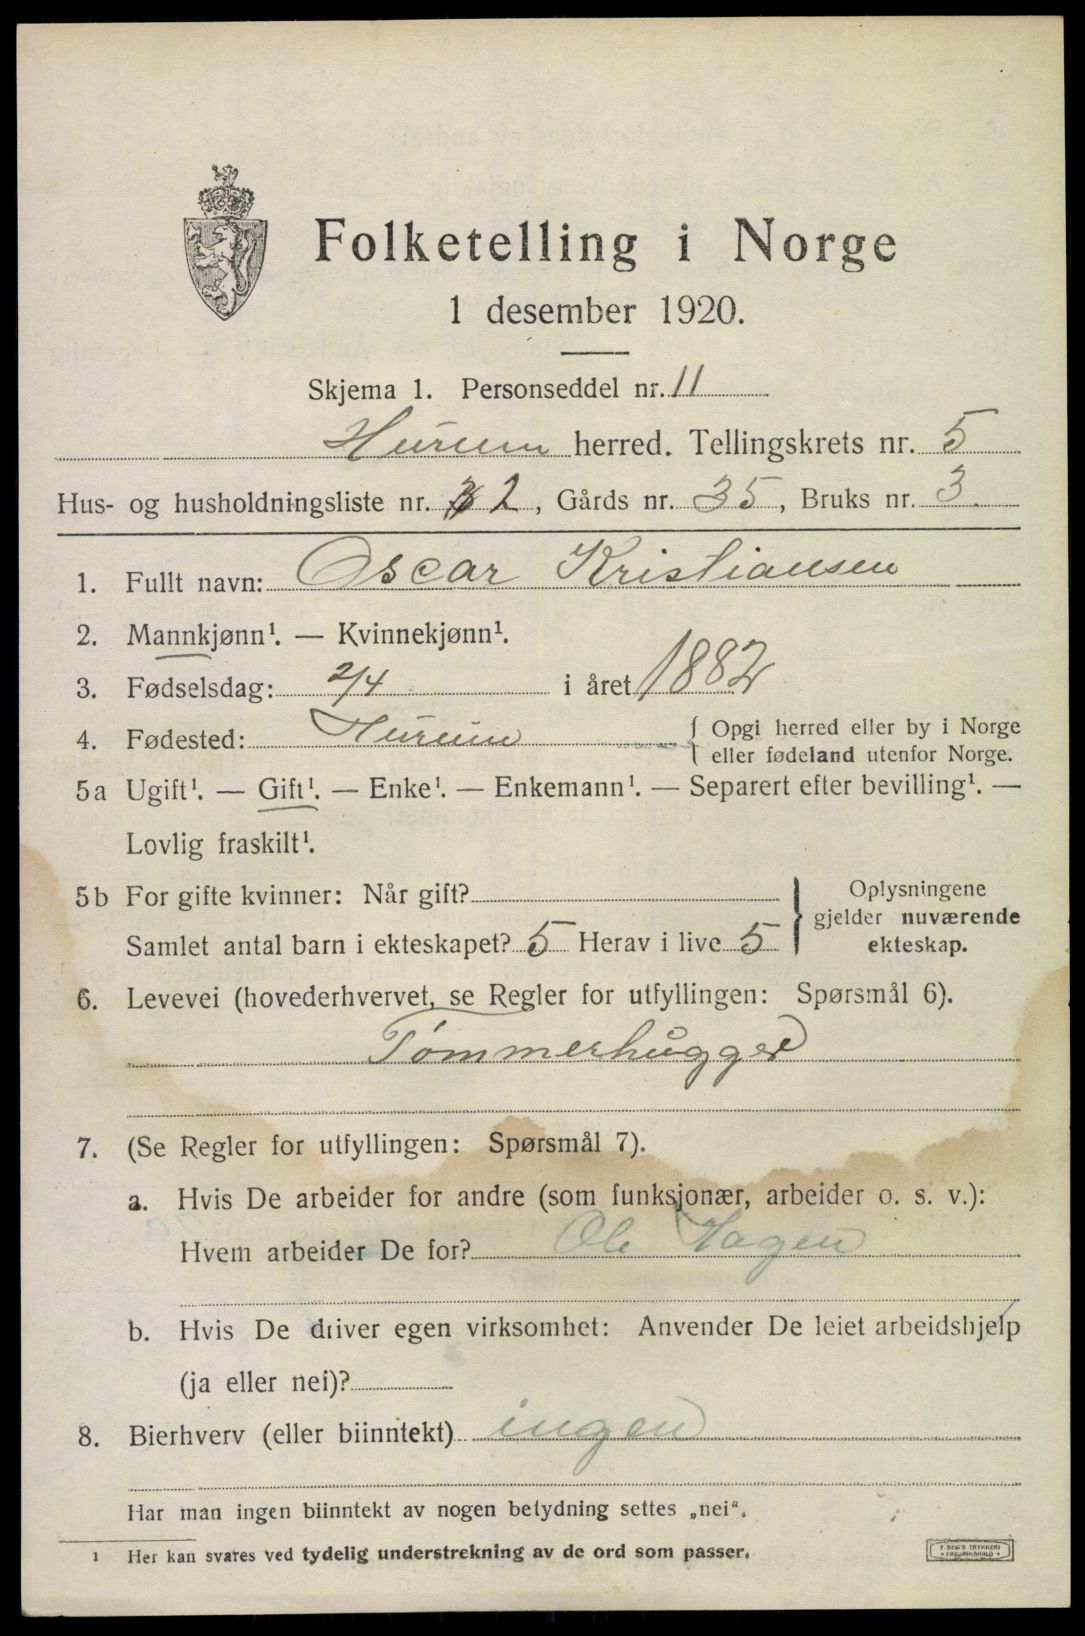 Folketelling i Norge
1 desember 1920.
Skjema 1. Personseddel nr. 11
Hurum herred. Tellingskrets nr. 5
Hus- og husholdningsliste nr. 2, Gårds nr. 35, Bruks nr. 3.
1. Fullt navn: Oscar Kristiansen
2. Mannkjønn¹. — Kvinnekjønn¹.
3. Fødselsdag: 2/4 i året 1882
4. Fødested: Hurum { Opgi herred eller by i Norge
eller fødeland utenfor Norge.
5 a Ugift¹. — Gift¹. — Enke¹. — Enkemann¹. — Separert efter bevilling¹. —
Lovlig fraskilt¹.
5 b For gifte kvinner: Når gift?
Samlet antal barn i ekteskapet? 5 Herav i live 5
} Oplysningene
gjelder nuværende
ekteskap.
6. Levevei (hovederhvervet, se Regler for utfyllingen: Spørsmål 6).
Tømmerhugger
7. (Se Regler for utfyllingen: Spørsmål 7).
a. Hvis De arbeider for andre (som funksjonær, arbeider o. s. v.):
Hvem arbeider De for? Ole Hagen
b. Hvis De driver egen virksomhet: Anvender De leiet arbeidshjelp
(ja eller nei)?
8. Bierhverv (eller biinntekt) ingen
Har man ingen biinntekt av nogen betydning settes „nei“.
1 Her kan svares ved tydelig understrekning av de ord som passer.
F. SEM'S TRYKKERI
• FREDRIKSHALD •